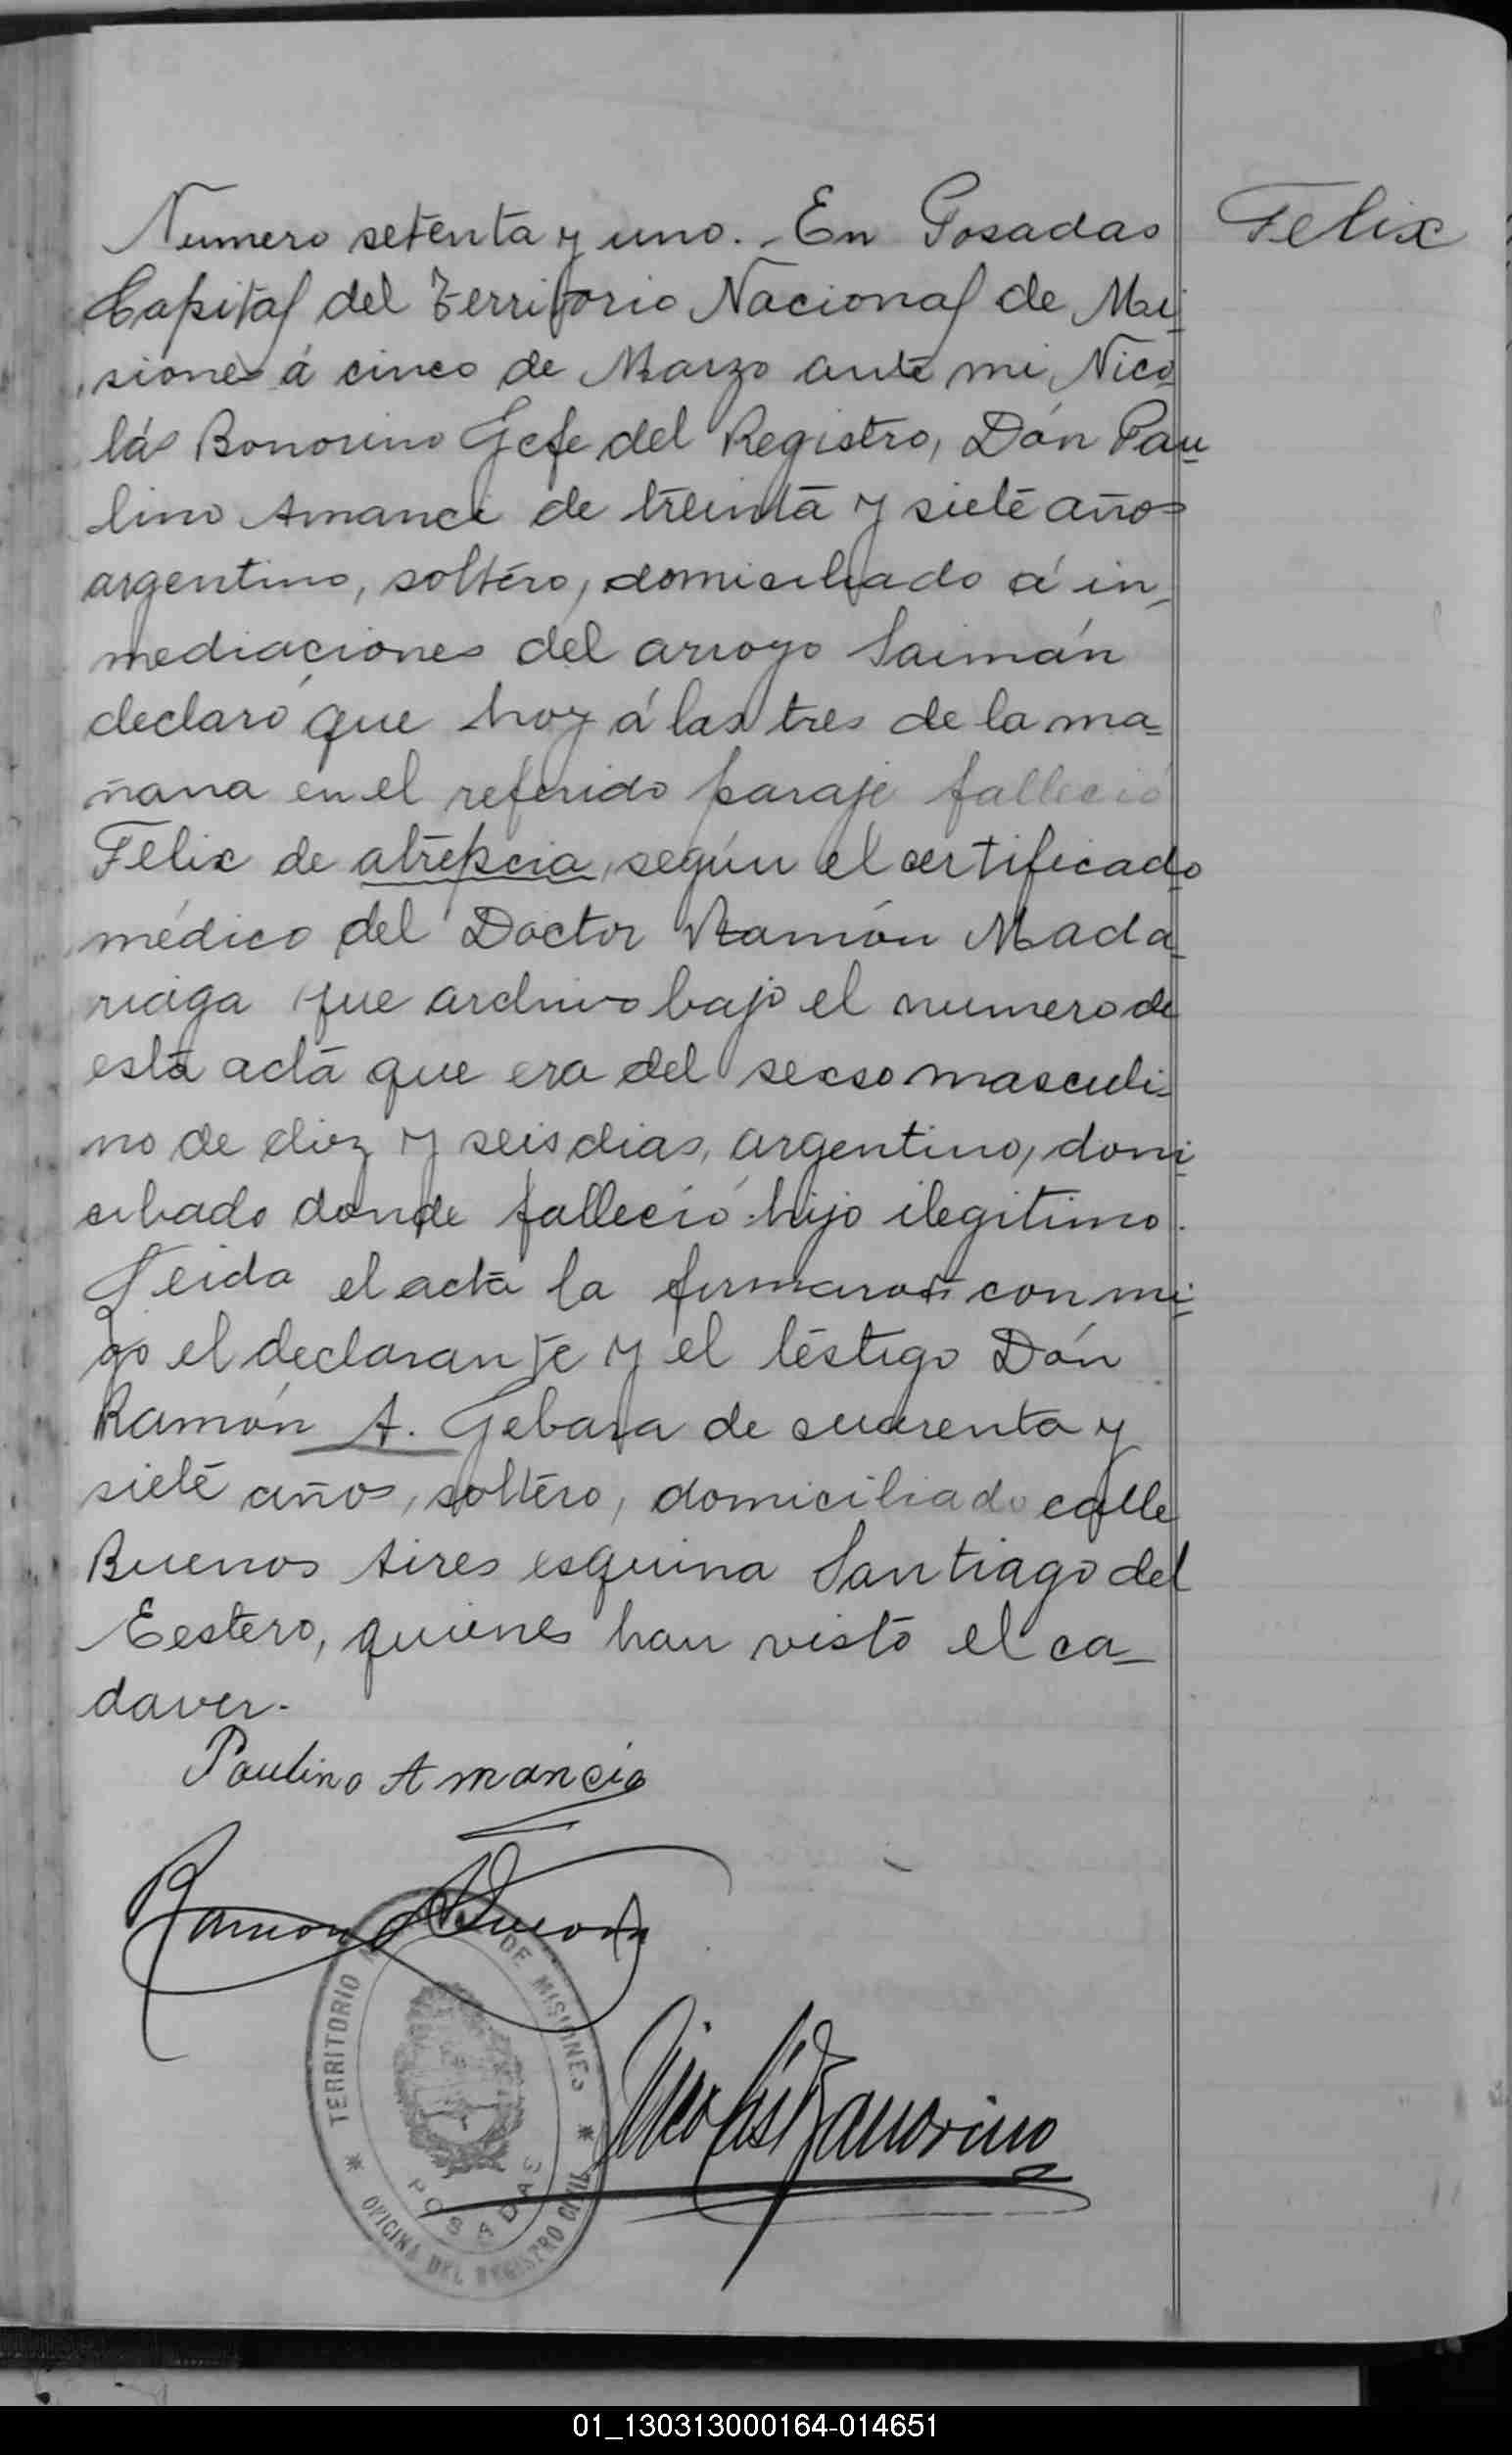 Numero setenta y uno. - En Posadas
Felix
Capital del Territorio Nacional de Mi-
siones á cinco de Marzo ante mi, Nico-
lás Bonorino Gefe del Registro, Dón Pau-
lino Amanci de treinta y siete años
argentino, soltéro, domiciliado á in-
mediaciones del arroyo Saimán
declaró que hoy á las tres de la ma=
ñana en el referido paraje falleció
Felix de atrepcia, según el certificado
médico del Doctor Ramón Mada-
riaga que archivo bajo el numero de
esta acta que era del secso masculi-
no de diez y seis dias, argentino, domi-
ciliado donde falleció hijo ilegitimo.
Leida el acta la firmaron conmi=
go el declarante y el testigo Dón
Ramón A. Gebara de cuarenta y
siete años, soltéro, domiciliado calle
Buenos Aires esquina Santiago del
Eestero, quienes han visto el ca-
daver.-
Paulino Amancio
Ramon
Nicolás Bonorino
TERRITORIO DE MISIONES
POSADAS
OFICINA DEL REGISTRO CIVIL
01_130313000164-014651